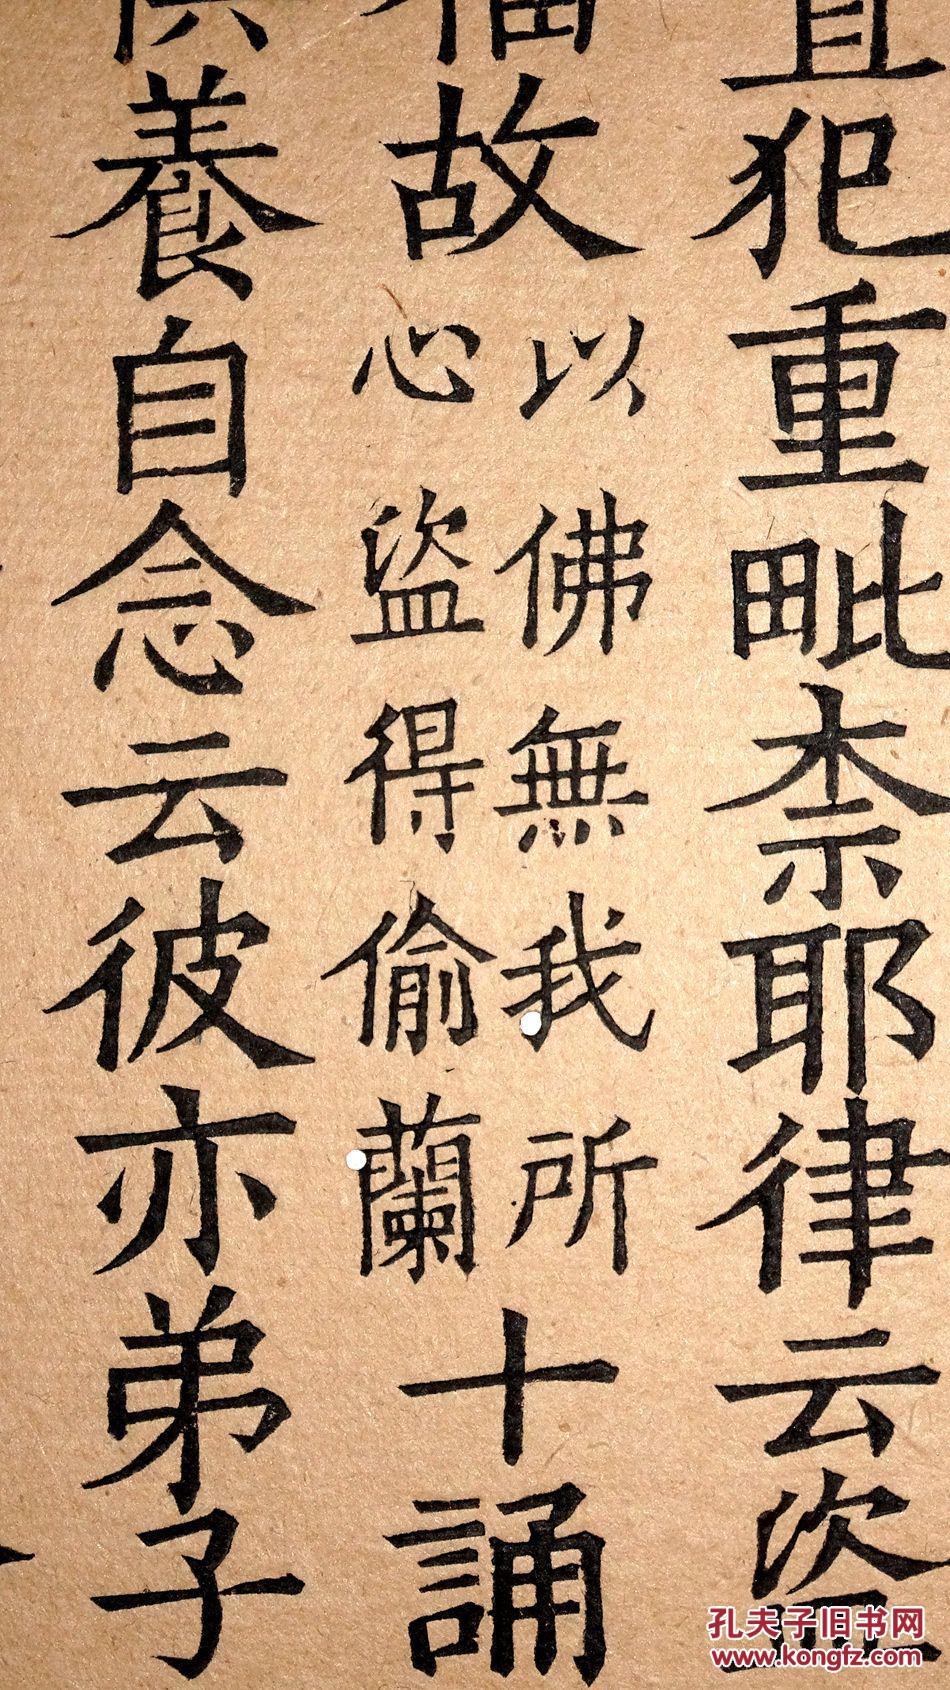 直犯重毗柰耶律云盜
福故
以佛無我所
心盜得偷蘭
十誦
供養自念云彼亦弟子
孔夫子旧书网
www.kongfz.com